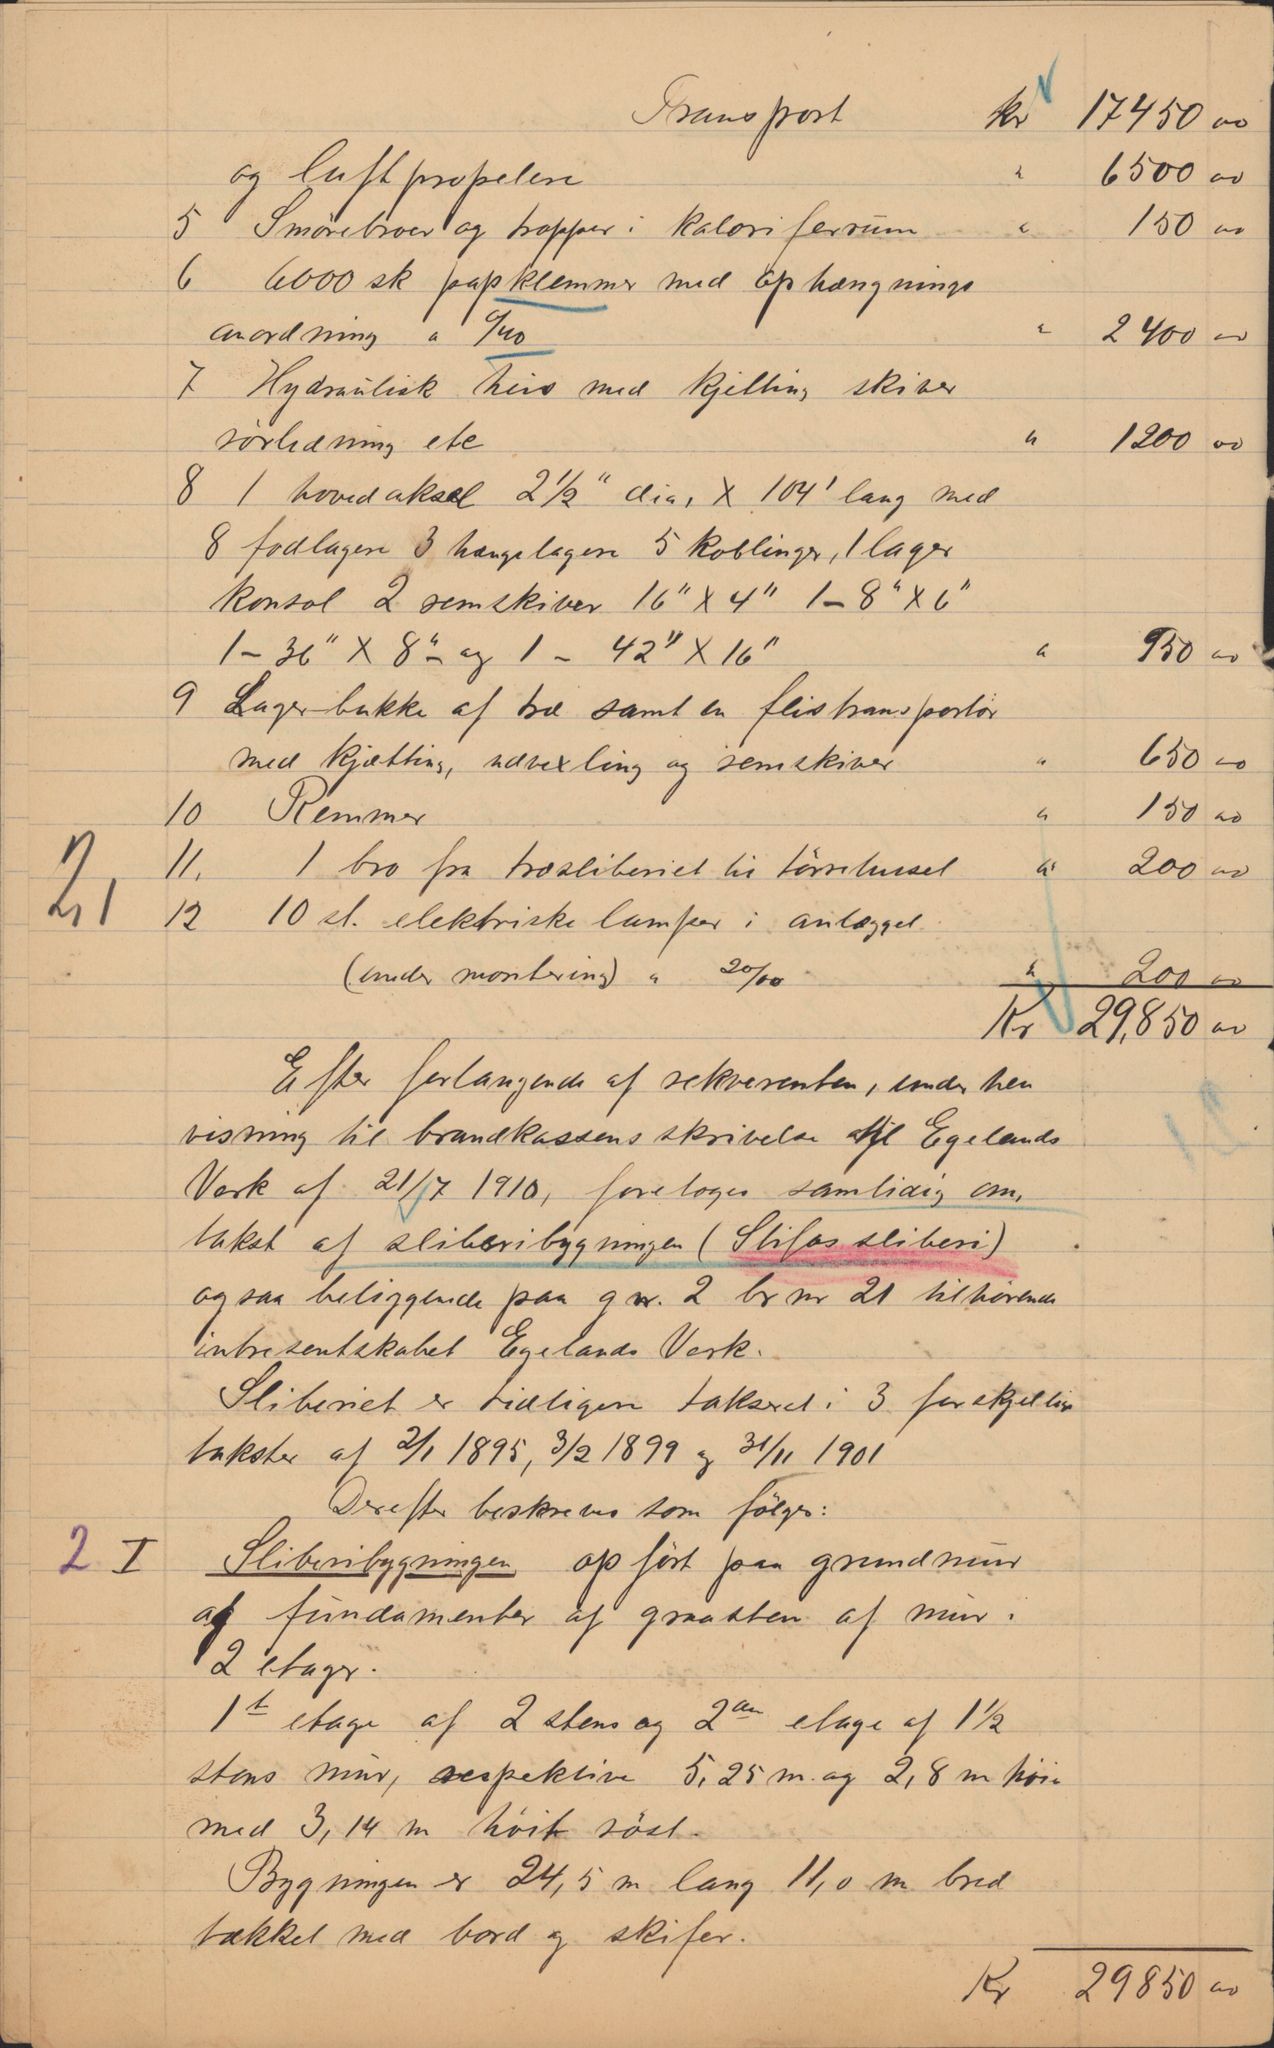 Transport kr 17450 00
og luftpropelere " 6500 00
5 Smörebroer og trapper i kaloriferrum " 150 00
6 6000 sk papklemmer med ophængnings
anordning a 0/40 " 2400 00
7 Hydraulisk heis med kjetting skiver
rörledning etc " 1200 00
8 1 hovedaksel 2 1/2" dia, X 104' lang med
8 fodlagere 3 hængelagere 5 koblinger, 1 lager
konsol 2 remskiver 16" X 4" 1 – 8" X 6"
1 – 36" X 8" – og 1 – 42" X 16" " 950 00
9 Lager-bukke af træ samt en flistransportör
med kjætting, udvexling og remskiver " 650 00
10 Remmer " 150 00
11. 1 bro fra træsliberiet til törrehuset " 200 00
12 10 st. elektriske lamper i anlægget
(under montering) a 20/00 " 200 00
Kr 29,850 00
Efter forlangende af rekvirenten, under hen
visning til brandkassens skrivelse til Egelands
Verk af 21/7 1910, foretoges samtidig om,
takst af sliberibygningen (Stifos sliberi)
ogsaa beliggende paa g nr. 2 br nr 21 tilhörende
intresentskabet Egelands Verk.
Sliberiet er tidligere takseret i 3 forskjellige
takster af 2/1 1895, 3/2 1899 og 31/11 1901
Derefter beskreves som fölger:
2 I Sliberibygningen opfört paa grundmur
og fundamenter af graasten af mur i
2 etager.
1t etage af 2 stens og 2den etage af 1 1/2
stens mur, respektive 5,25 m. og 2,8 m höie
med 3,14 m höit röst.
Bygningen er 24,5 m lang 11,0 m bred
tækket med bord og skifer.
Kr 29850 00